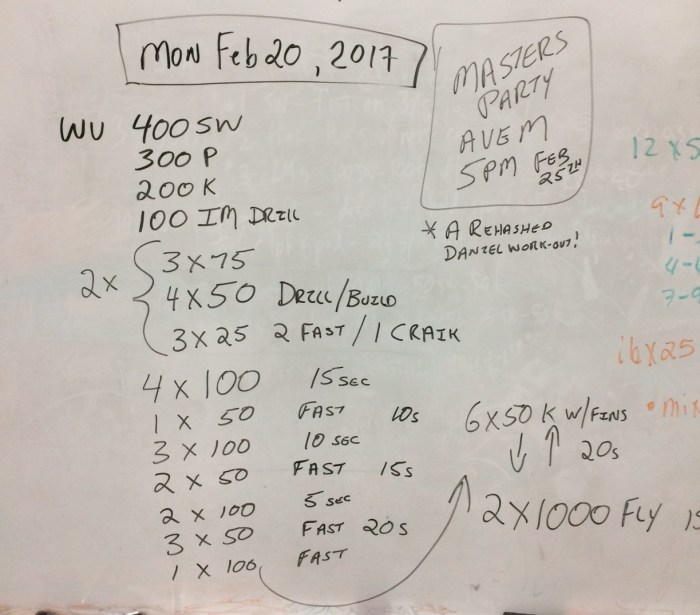 MON Feb 20, 2017
MASTERS
PARTY
AVE M
5PM FEB
25TH
WU 400 SW
300 P
200 K
100 IM DRILL
* A REHASHED
DANIEL WORK-OUT!
2x
3 x 75
4 x 50 DRILL/BUILD
3 x 25 2 FAST / 1 CRAIK
4 x 100 15 SEC
1 x 50 FAST 10s
3 x 100 10 SEC
2 x 50 FAST 15s
2 x 100 5 SEC
3 x 50 FAST 20s
1 x 100 FAST
6x50 K W/FINS
↓ ↑ 20s
2x1000 FLY
12 x 5
9 x
1 -
4 -
7-9
16x25
• mix